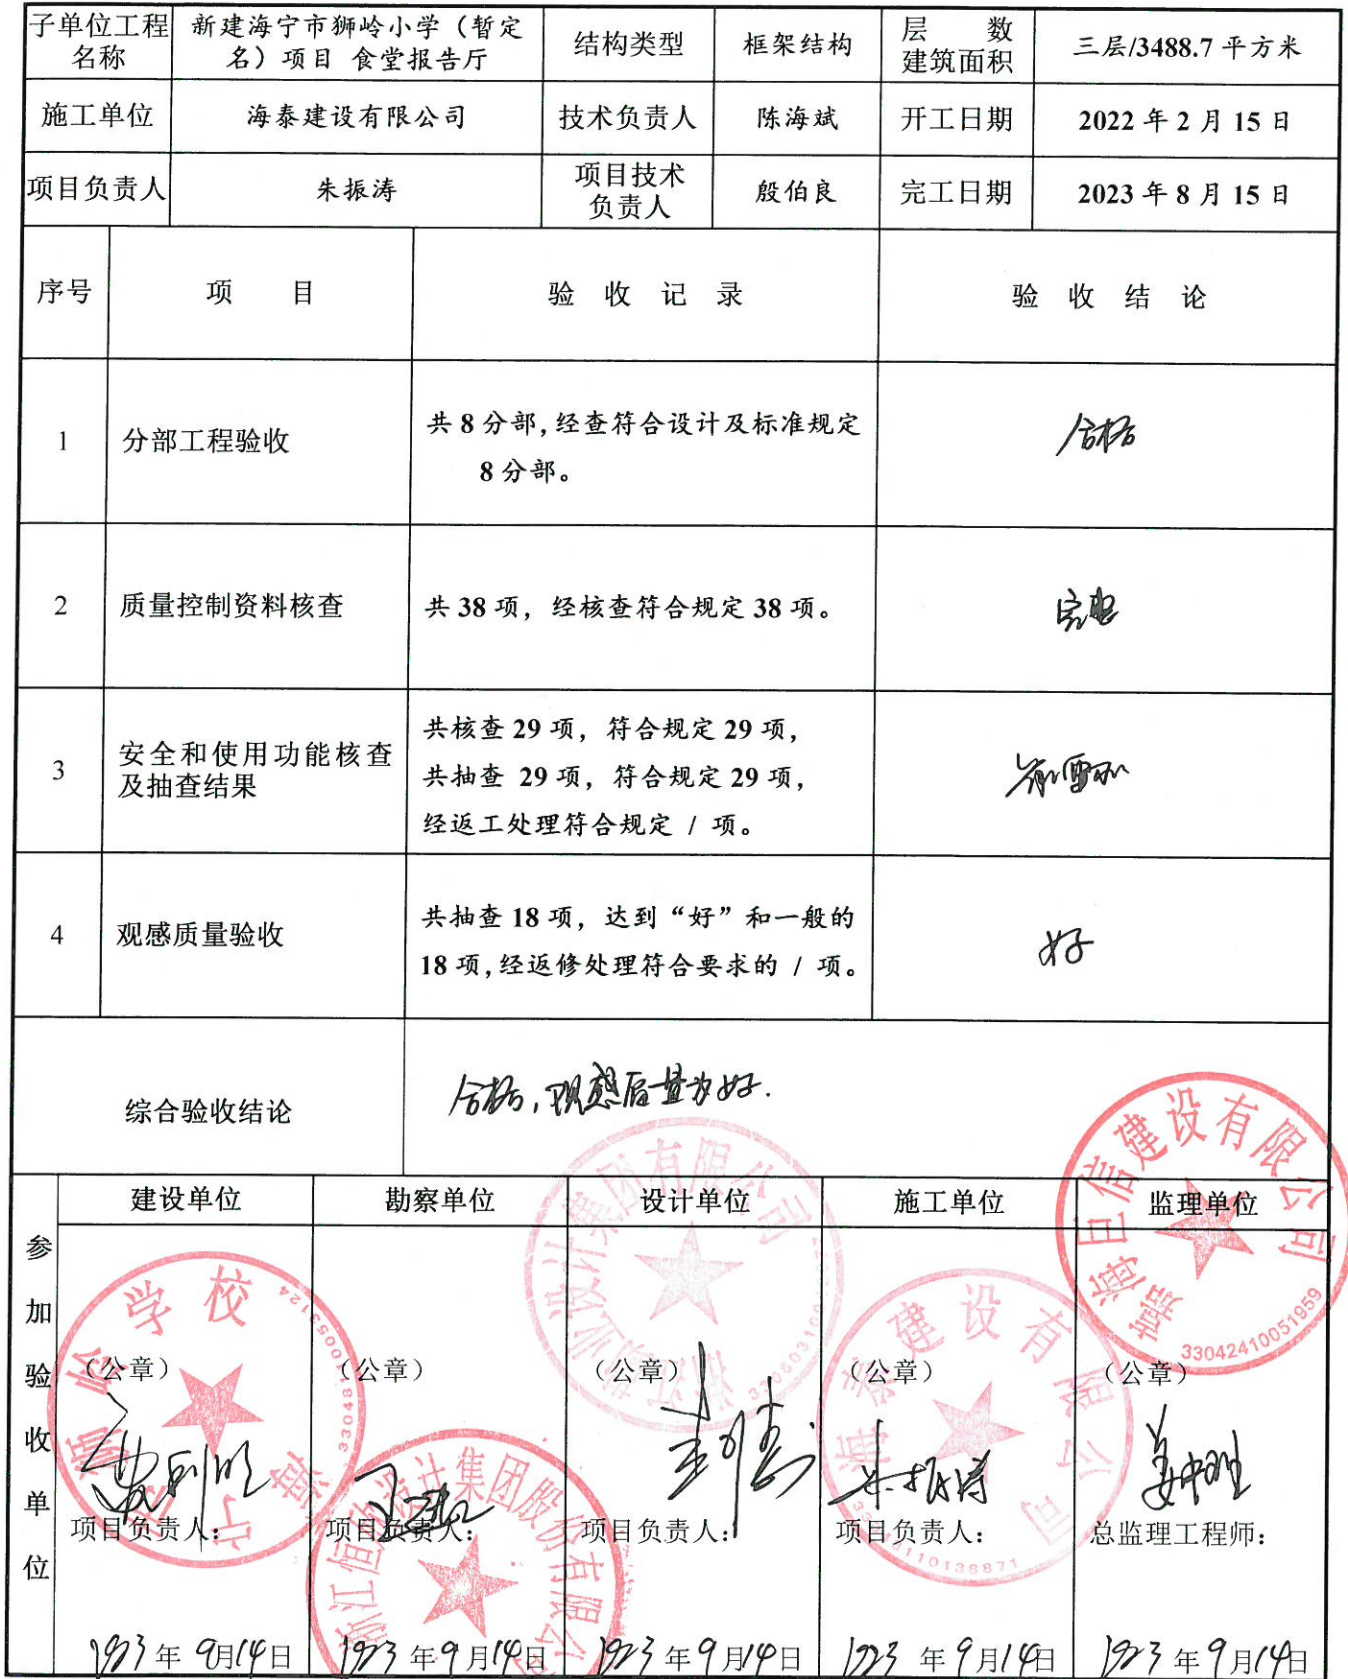 子单位工程名称 新建海宁市狮岭小学（暂定名）项目 食堂报告厅 结构类型 框架结构 层 数 建筑面积 三层/3488.7 平方米
施工单位 海泰建设有限公司 技术负责人 陈海斌 开工日期 2022 年 2 月 15 日
项目负责人 朱振涛 项目技术负责人 殷伯良 完工日期 2023 年 8 月 15 日
序号 项 目 验 收 记 录 验 收 结 论
1 分部工程验收 共 8 分部，经查符合设计及标准规定 合格
8 分部。
2 质量控制资料核查 共 38 项，经核查符合规定 38 项。 完整
3 安全和使用功能核查及抽查结果 共核查 29 项，符合规定 29 项，
共抽查 29 项，符合规定 29 项，
经返工处理符合规定 / 项。
4 观感质量验收 共抽查 18 项，达到“好”和一般的 好
18 项，经返修处理符合要求的 / 项。
综合验收结论 合格，观感质量为好.
参加验收单位
建设单位 勘察单位 设计单位 施工单位 监理单位
（公章） （公章） （公章） （公章） （公章）
朱振涛
项目负责人： 项目负责人： 项目负责人： 项目负责人： 总监理工程师：
年 9月14日 年 9月14日 年 9月14日 年 9月14日 年 9月14日
海泰建设有限公司
建设有限公司
33042410051959